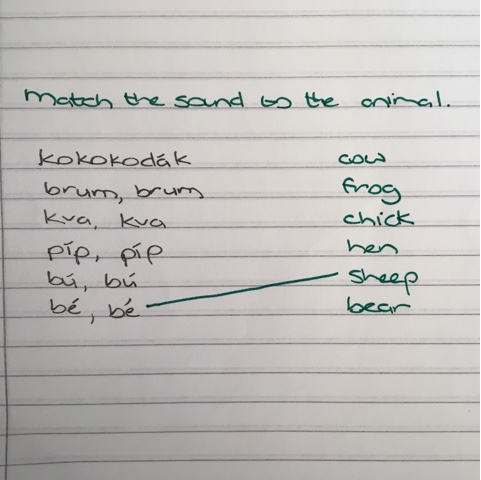 Match the sound to the animal.
kokokodák cow
brum, brum frog
kva, kva chick
píp, píp hen
bú, bú sheep
bé, bé bear